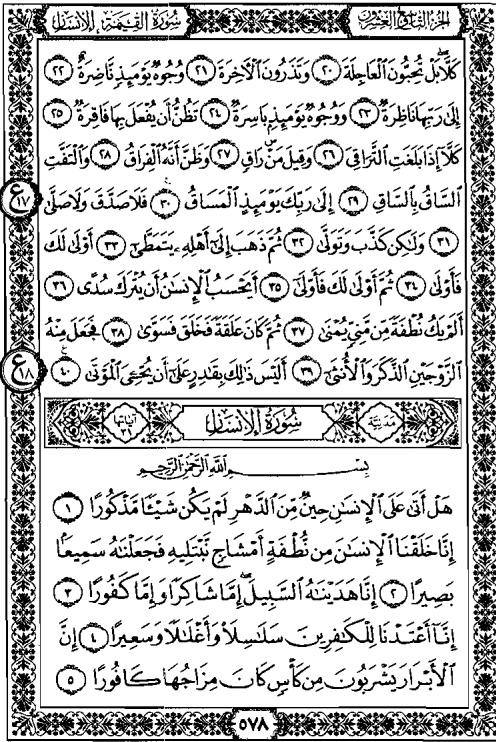 الجزء التاسع والعشرون
سورة القيمة، الإنسان
كَلَّا بَلْ تُحِبُّونَ الْعَاجِلَةَ ٢٠ وَتَذَرُونَ الْآخِرَةَ ٢١ وُجُوهٌ يَوْمَئِذٍ نَّاضِرَةٌ ٢٢
إِلَىٰ رَبِّهَا نَاظِرَةٌ ٢٣ وَوُجُوهٌ يَوْمَئِذٍ بَاسِرَةٌ ٢٤ تَظُنُّ أَن يُفْعَلَ بِهَا فَاقِرَةٌ ٢٥
كَلَّا إِذَا بَلَغَتِ التَّرَاقِيَ ٢٦ وَقِيلَ مَنْ رَاقٍ ٢٧ وَظَنَّ أَنَّهُ الْفِرَاقُ ٢٨ وَالْتَفَّتِ
السَّاقُ بِالسَّاقِ ٢٩ إِلَىٰ رَبِّكَ يَوْمَئِذٍ الْمَسَاقُ ٣٠ فَلَا صَدَّقَ وَلَا صَلَّىٰ
٣١ وَلَٰكِن كَذَّبَ وَتَوَلَّىٰ ٣٢ ثُمَّ ذَهَبَ إِلَىٰ أَهْلِهِ يَتَمَطَّىٰ ٣٣ أَوْلَىٰ لَكَ
فَأَوْلَىٰ ٣٤ ثُمَّ أَوْلَىٰ لَكَ فَأَوْلَىٰ ٣٥ أَيَحْسَبُ الْإِنسَانُ أَن يُتْرَكَ سُدًى ٣٦
أَلَمْ يَكُ نُطْفَةً مِّن مَّنِيٍّ يُمْنَىٰ ٣٧ ثُمَّ كَانَ عَلَقَةً فَخَلَقَ فَسَوَّىٰ ٣٨ فَجَعَلَ مِنْهُ
الزَّوْجَيْنِ الذَّكَرَ وَالْأُنثَىٰ ٣٩ أَلَيْسَ ذَٰلِكَ بِقَادِرٍ عَلَىٰ أَن يُحْيِيَ الْمَوْتَىٰ ٤٠
ع ١٧
ع ١٨
مدنية
سورة الإنسان
آياتها ٣١
بِسْمِ اللَّهِ الرَّحْمَٰنِ الرَّحِيمِ
هَلْ أَتَىٰ عَلَى الْإِنسَانِ حِينٌ مِّنَ الدَّهْرِ لَمْ يَكُن شَيْئًا مَّذْكُورًا ١
إِنَّا خَلَقْنَا الْإِنسَانَ مِن نُّطْفَةٍ أَمْشَاجٍ نَّبْتَلِيهِ فَجَعَلْنَاهُ سَمِيعًا
بَصِيرًا ٢ إِنَّا هَدَيْنَاهُ السَّبِيلَ إِمَّا شَاكِرًا وَإِمَّا كَفُورًا ٣
إِنَّا أَعْتَدْنَا لِلْكَافِرِينَ سَلَاسِلَا وَأَغْلَالًا وَسَعِيرًا ٤ إِنَّ
الْأَبْرَارَ يَشْرَبُونَ مِن كَأْسٍ كَانَ مِزَاجُهَا كَافُورًا ٥
٥٧٨